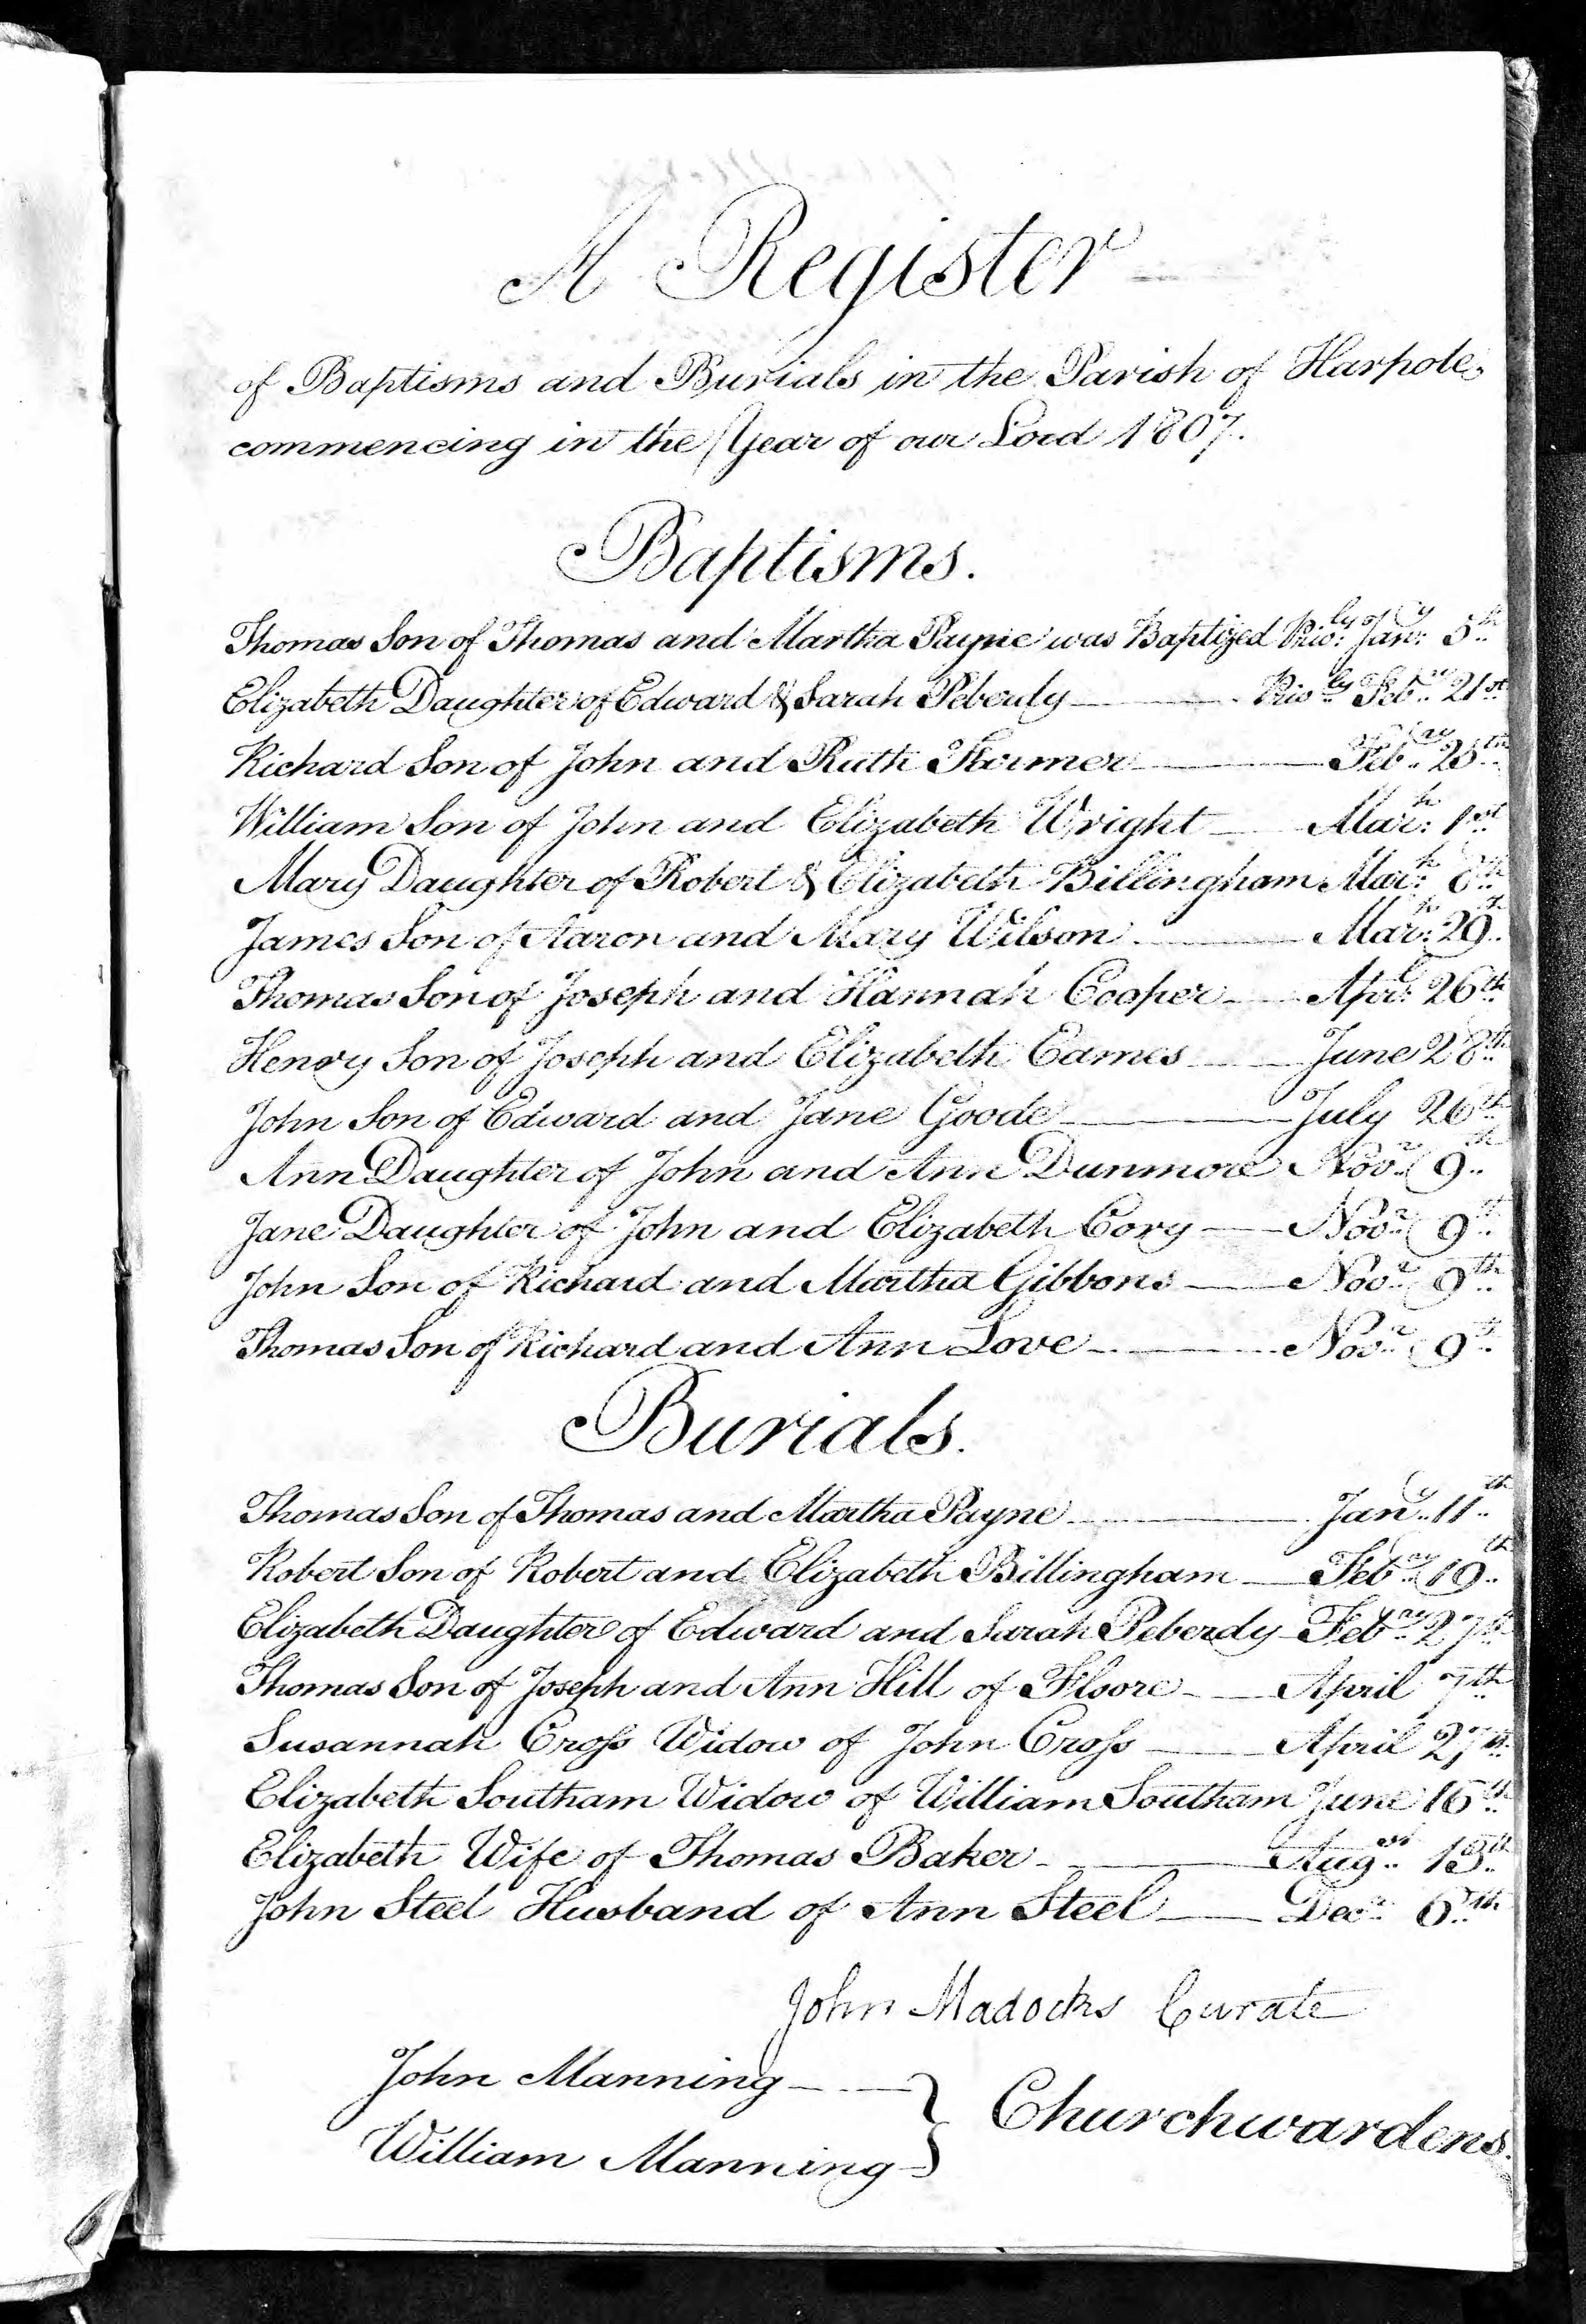 A Register
of Baptisms and Burials in the Parish of Harpole,
commencing in the Year of our Lord 1807.
Baptisms.
Thomas Son of Thomas and Martha Payne was Baptized Priv:ly Jan:y 5th
Elizabeth Daughter of Edward & Sarah Peberdy Privly Febry 21st
Richard Son of John and Ruth Febry 25th
William Son of John and Elizabeth Wright Mar:h 1st
Mary Daughter of Robert & Elizabeth Billingham Mar:h 8th
James Son of Aaron and Mary Wilson Mar:h 29th
Thomas Son of Joseph and Hannah Cooper Apr:l 26th
Henry Son of Joseph and Elizabeth Eames June 28th
John Son of Edward and Jane Goode July 26th
Ann Daughter of John and Ann Dunmore Novr 9th
Jane Daughter of John and Elizabeth Cory Novr 9th
John Son of Richard and Martha Gibbons Novr 9th
Thomas Son of Richard and Ann Love Novr 9th
Burials.
Thomas Son of Thomas and Martha Payne Jany 11th
Robert Son of Robert and Elizabeth Billingham Febry 19th
Elizabeth Daughter of Edward and Sarah Peberdy Febry 27th
Thomas Son of Joseph and Ann Hill of Floore April 7th
Susannah Cross Widow of John Cross April 27th
Elizabeth Southam Widow of William Southam June 16th
Elizabeth Wife of Thomas Baker Augst
John Steel Husband of Ann Steel Decr 6th
John Madocks Curate
John Manning
William Manning } Churchwardens.